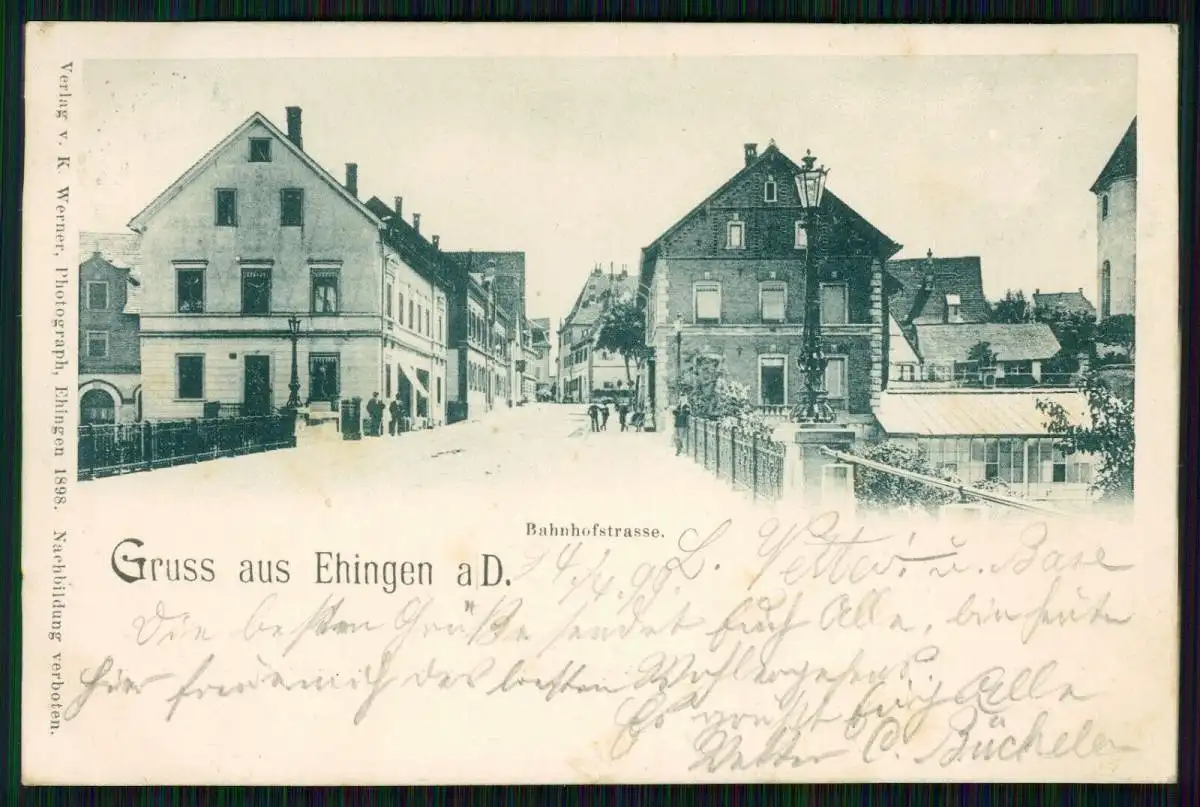 Verlag v. K. Werner, Photograph, Ehingen 1898. Nachbildung verboten.
Bahnhofstrasse.
Gruss aus Ehingen a|D.
L. Vetter u. Base
Die besten Grüße sendet Euch Alle, bin heute
hier freue mich des besten Wohlergehens.
Es grüßt Euch Alle
Vetter C. Büchele